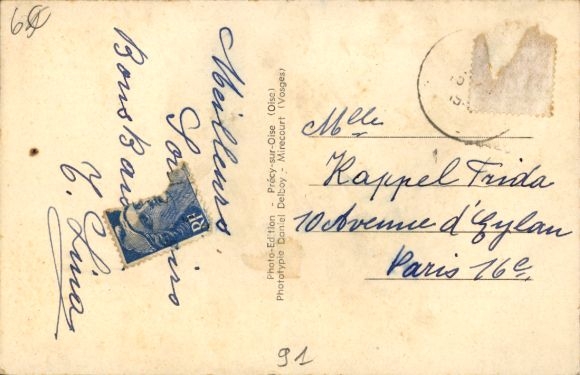 Meilleurs
Bons
Photo-Edition - Précy-sur-Oise (Oise)
Phototypie Daniel Delboy - Mirecourt (Vosges)
Mlle
Kappel Frida
10 Avenue d'Eylan
Paris 16e
RF
91